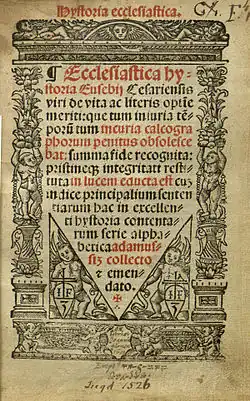 Hystoria ecclesiastica.
¶ Ecclesiastica hy-
storia Eusebij Cesariensis
viri de vita ac literis optĩe
meriti: que tum iniuria tē-
porũ tum incuria calcogra
phorum penitus obsolesce
bat: summa fide recognita:
pristineqz integritati resti
tuta in lucem educta est cuz
indice principalium senten
tiarum hac in excellenti
hystoria contenta-
rum serie alpha-
betica adamus-
siz collecto
⁊ emen-
dato.
✠
I F
I F